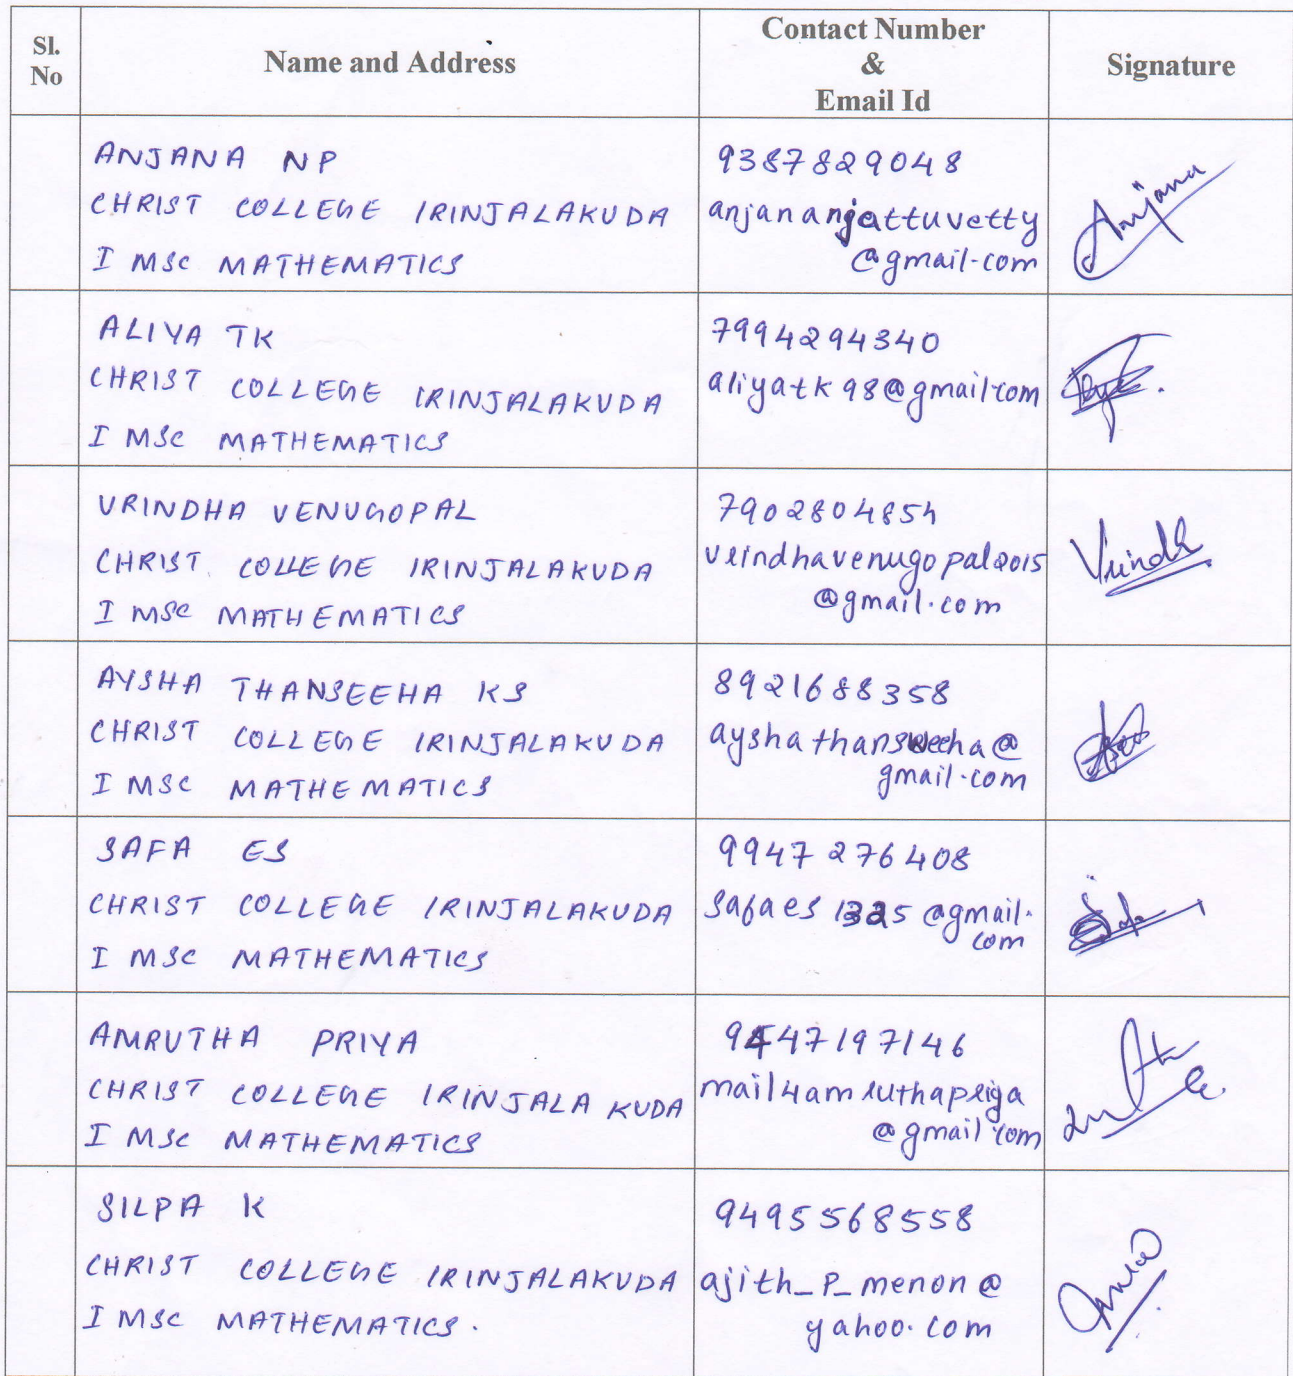 Sl. No
Name and Address
Contact Number
&
Email Id
Signature
ANJANA NP
CHRIST COLLEGE IRINJALAKUDA
I MSC MATHEMATICS
9387829048
anjananjattuvetty
@gmail.com
Anjana
ALIYA TK
CHRIST COLLEGE IRINJALAKUDA
I MSC MATHEMATICS
7994294340
aliyatk98@gmail.com
VRINDHA VENUGOPAL
CHRIST COLLEGE IRINJALAKUDA
I MSC MATHEMATICS
7902804854
vrindhavenugopal2015
@gmail.com
Vrindh
AYSHA THANSEEHA KS
CHRIST COLLEGE IRINJALAKUDA
I MSC MATHEMATICS
8921688358
ayshathanseeha@
gmail.com
SAFA ES
CHRIST COLLEGE IRINJALAKUDA
I MSC MATHEMATICS
9947276408
safaes1325@gmail.
com
AMRUTHA PRIYA
CHRIST COLLEGE IRINJALAKUDA
I MSC MATHEMATICS
9447197146
mail4amruthapriya
@gmail.com
SILPA K
CHRIST COLLEGE IRINJALAKUDA
I MSC MATHEMATICS.
9495568558
ajith_P_menon@
yahoo.com